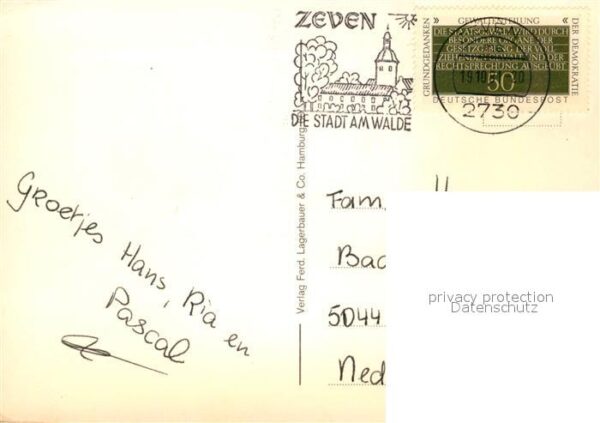 ZEVEN
DIE STADT AM WALDE
GRUNDGEDANKEN
GEWALTENTEILUNG
DER DEMOKRATIE
DIE STAATSGEWALT WIRD DURCH
BESONDERE ORGANE DER
GESETZGEBUNG, DER VOLL
ZIEHENDEN GEWALT UND DER
RECHTSPRECHUNG AUSGEÜBT
50
DEUTSCHE BUNDESPOST
2730
Groetjes Hans, Ria en
Pascal
Verlag Ferd. Lagerbauer & Co. Hamburg
Fam.
5044
privacy protection
Datenschutz